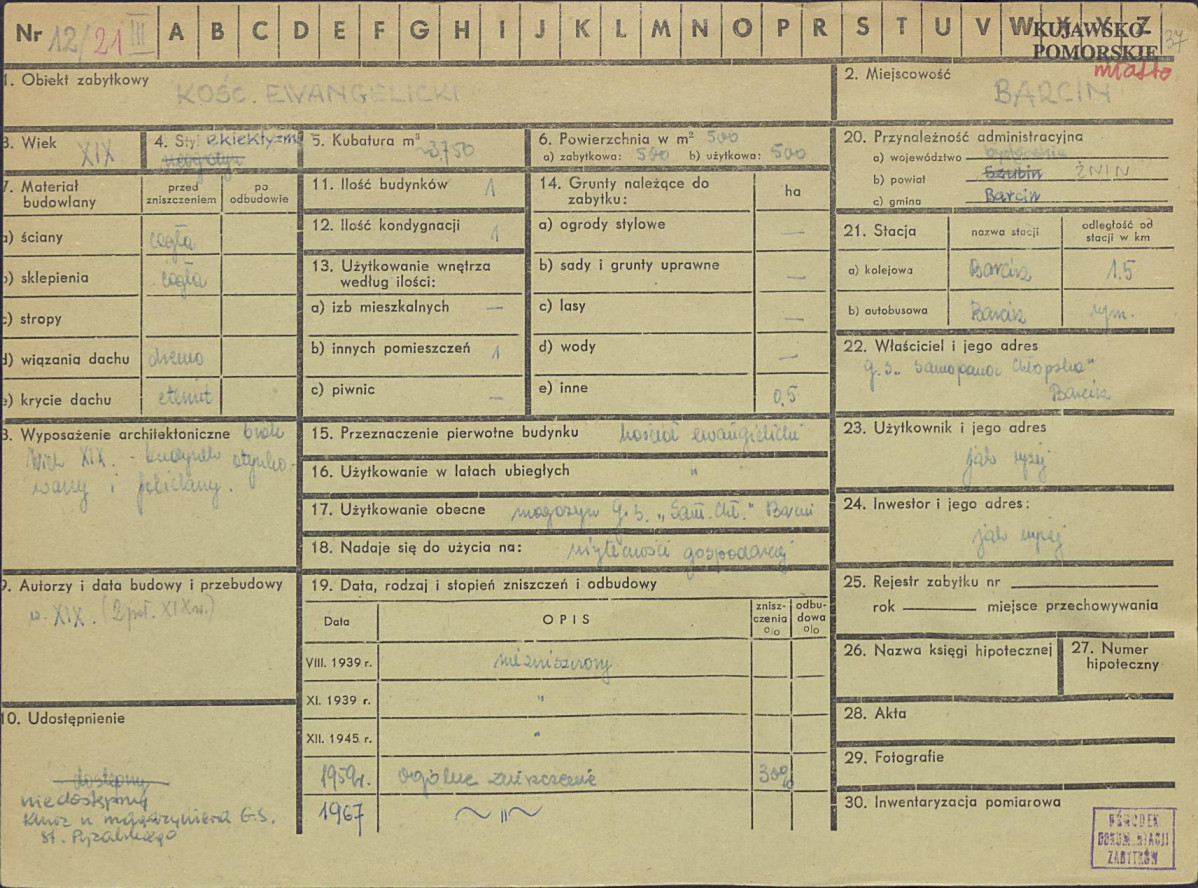 Nr 12/21 III A B C D E F G H I J K L M N O P R S T U V W X Y Z 37
KUJAWSKO-
POMORSKIE
miasto
1. Obiekt zabytkowy
KOŚC. EWANGELICKI
2. Miejscowość
BARCIN
3. Wiek
XIX
4. Styl eklektyzm
neogotyk
5. Kubatura m³
~3750
6. Powierzchnia w m² 500
a) zabytkowa: 500 b) użytkowa: 500
20. Przynależność administracyjna
a) województwo bydgoskie
b) powiat Szubin ŻNIN
c) gmina Barcin
7. Materiał
budowlany
przed
zniszczeniem
po
odbudowie
a) ściany cegła
b) sklepienia cegła
c) stropy
d) wiązania dachu drewno
e) krycie dachu eternit
11. Ilość budynków 1
12. Ilość kondygnacji 1
13. Użytkowanie wnętrza
według ilości:
a) izb mieszkalnych —
b) innych pomieszczeń 1
c) piwnic —
14. Grunty należące do
zabytku:
ha
a) ogrody stylowe —
b) sady i grunty uprawne —
c) lasy —
d) wody —
e) inne 0,5
21. Stacja
nazwa stacji
odległość od
stacji w km
a) kolejowa Barcin 1.5
b) autobusowa Barcin
22. Właściciel i jego adres
G.S. „Samopomoc Chłopska"
Barcin
8. Wyposażenie architektoniczne brak
Wiek XIX. - budynek otynko-
wany i
15. Przeznaczenie pierwotne budynku kościół ewangielicki
16. Użytkowanie w latach ubiegłych "
17. Użytkowanie obecne magazyn G.S. „Sam. Chł." Barcin
18. Nadaje się do użycia na: użyteczności gospodarczej
23. Użytkownik i jego adres
jak wyżej
24. Inwestor i jego adres:
jak wyżej
9. Autorzy i data budowy i przebudowy
w. XIX. (2 poł. XIX w.)
19. Data, rodzaj i stopień zniszczeń i odbudowy
Data
OPIS
znisz-
czenia
o/o
odbu-
dowa
o/o
VIII. 1939 r. niezniszczony
XI. 1939 r. "
XII. 1945 r. "
1959r. ogólne zniszczenie 30%
1967 ~ " ~
25. Rejestr zabytku nr
rok miejsce przechowywania
26. Nazwa księgi hipotecznej
27. Numer
hipoteczny
28. Akta
29. Fotografie
30. Inwentaryzacja pomiarowa
10. Udostępnienie
dostępny
niedostępny
klucz u magazyniera G.S.
St. Pyzalskiego
OŚRODEK
DOKUMENTACJI
ZABYTKÓW